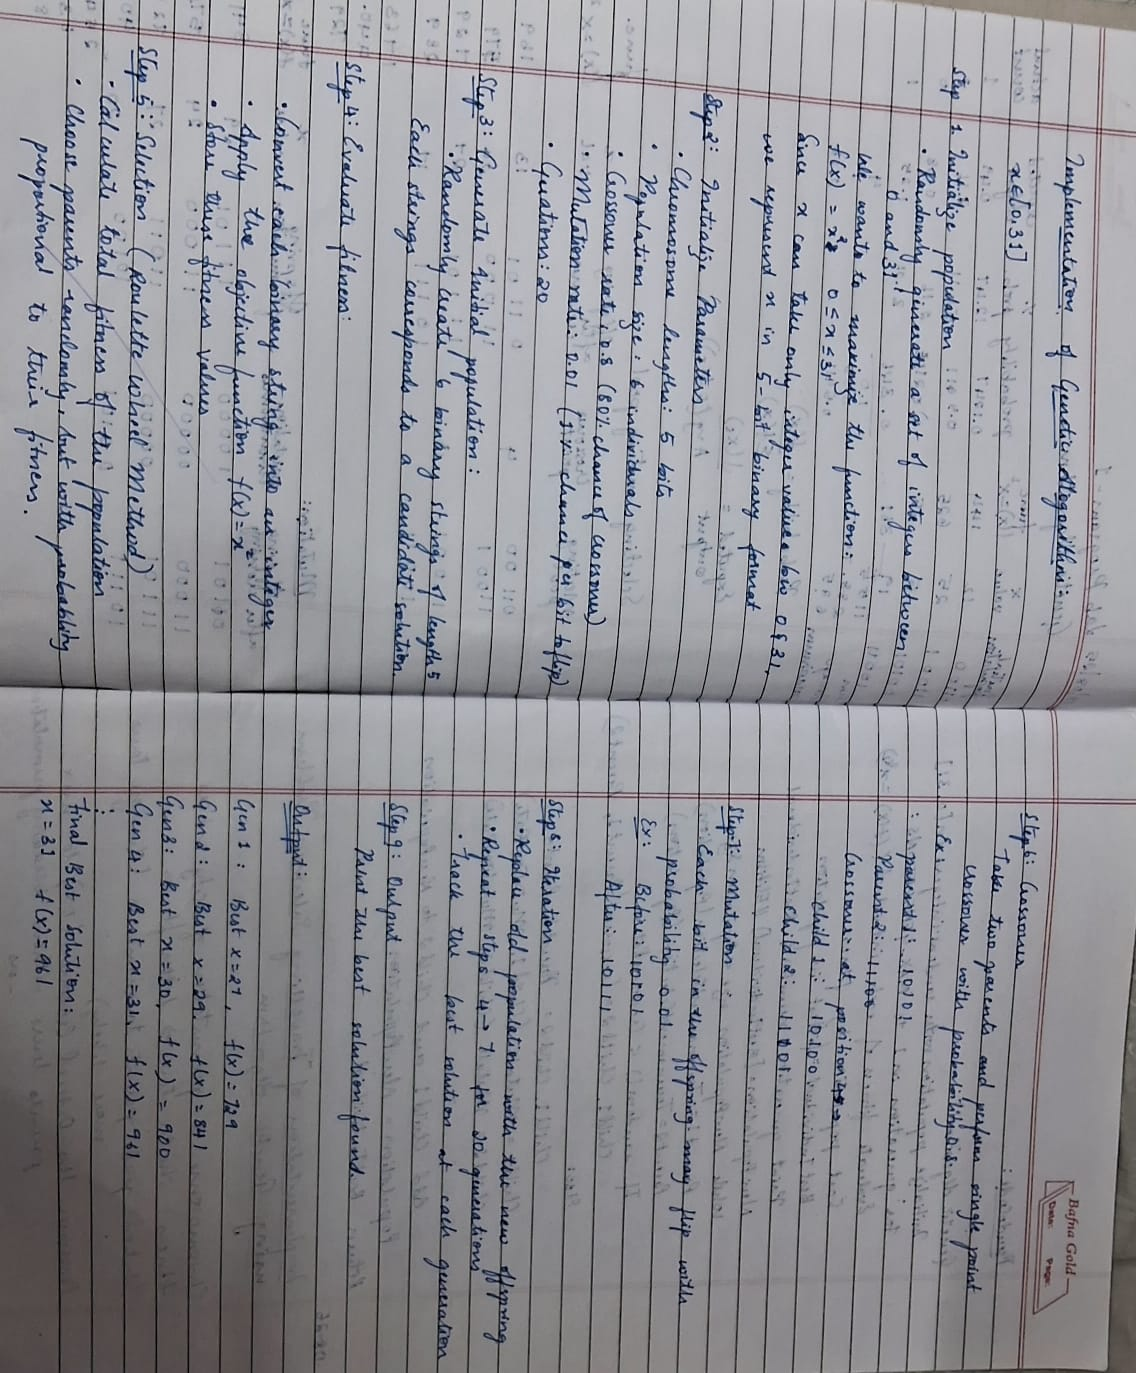 Implementation of Genetic Algorithm
x ∈ [0,31]
Step 1. Initialize population
• Randomly generate a set of integers between
0 and 31
We wants to maximize the function:
f(x) = x², 0 ≤ x ≤ 31
Since x can take only integer values b/w 0 & 31,
we represent x in 5-bit binary format
Step 2: Initialize Parameters
• Chromosome lengths: 5 bits
• Population size: 6 individuals
• Crossover rate: 0.8 (80% chance of crossover)
• Mutation rate: 0.01 (1% chance per bit to flip)
• Guation: 20
Step 3: Generate Initial population:
• Randomly create 6 binary strings of length 5
Each strings corresponds to a candidate solution.
Step 4: Evaluate fitness:
• Convert each binary string into an integer
• Apply the objective function f(x) = x
• Store these fitness values
Step 5: Selection (Roulette wheel Method)
• Calculate total fitness of the population
• Choose parents randomly, but with probability
proportional to their fitness.
Bafna Gold
Date: Page:
Step 6: Crossover
Take two parents and perform single point
crossover with probability 0.8
Ex:
parent 1: 10101
Parent 2: 11100
Crossover at position
child 1: 10100
child 2: 11101
Step 7: Mutation
Each bit in the offspring may flip with
probability 0.01
Ex: Before: 10101
After: 10111
Step 8: Iteration
• Replace old population with the new offspring
• Repeat steps 4 → 7 for 20 generations
• Track the best solution at each generation
Step 9: Output
Print the best solution found.
Output:
Gen 1: Best x = 27, f(x) = 729
Gen 2: Best x = 29, f(x) = 841
Gen 3: Best x = 30, f(x) = 900
Gen 4: Best x = 31, f(x) = 961
:
Final Best Solution:
x = 31 f(x) = 961